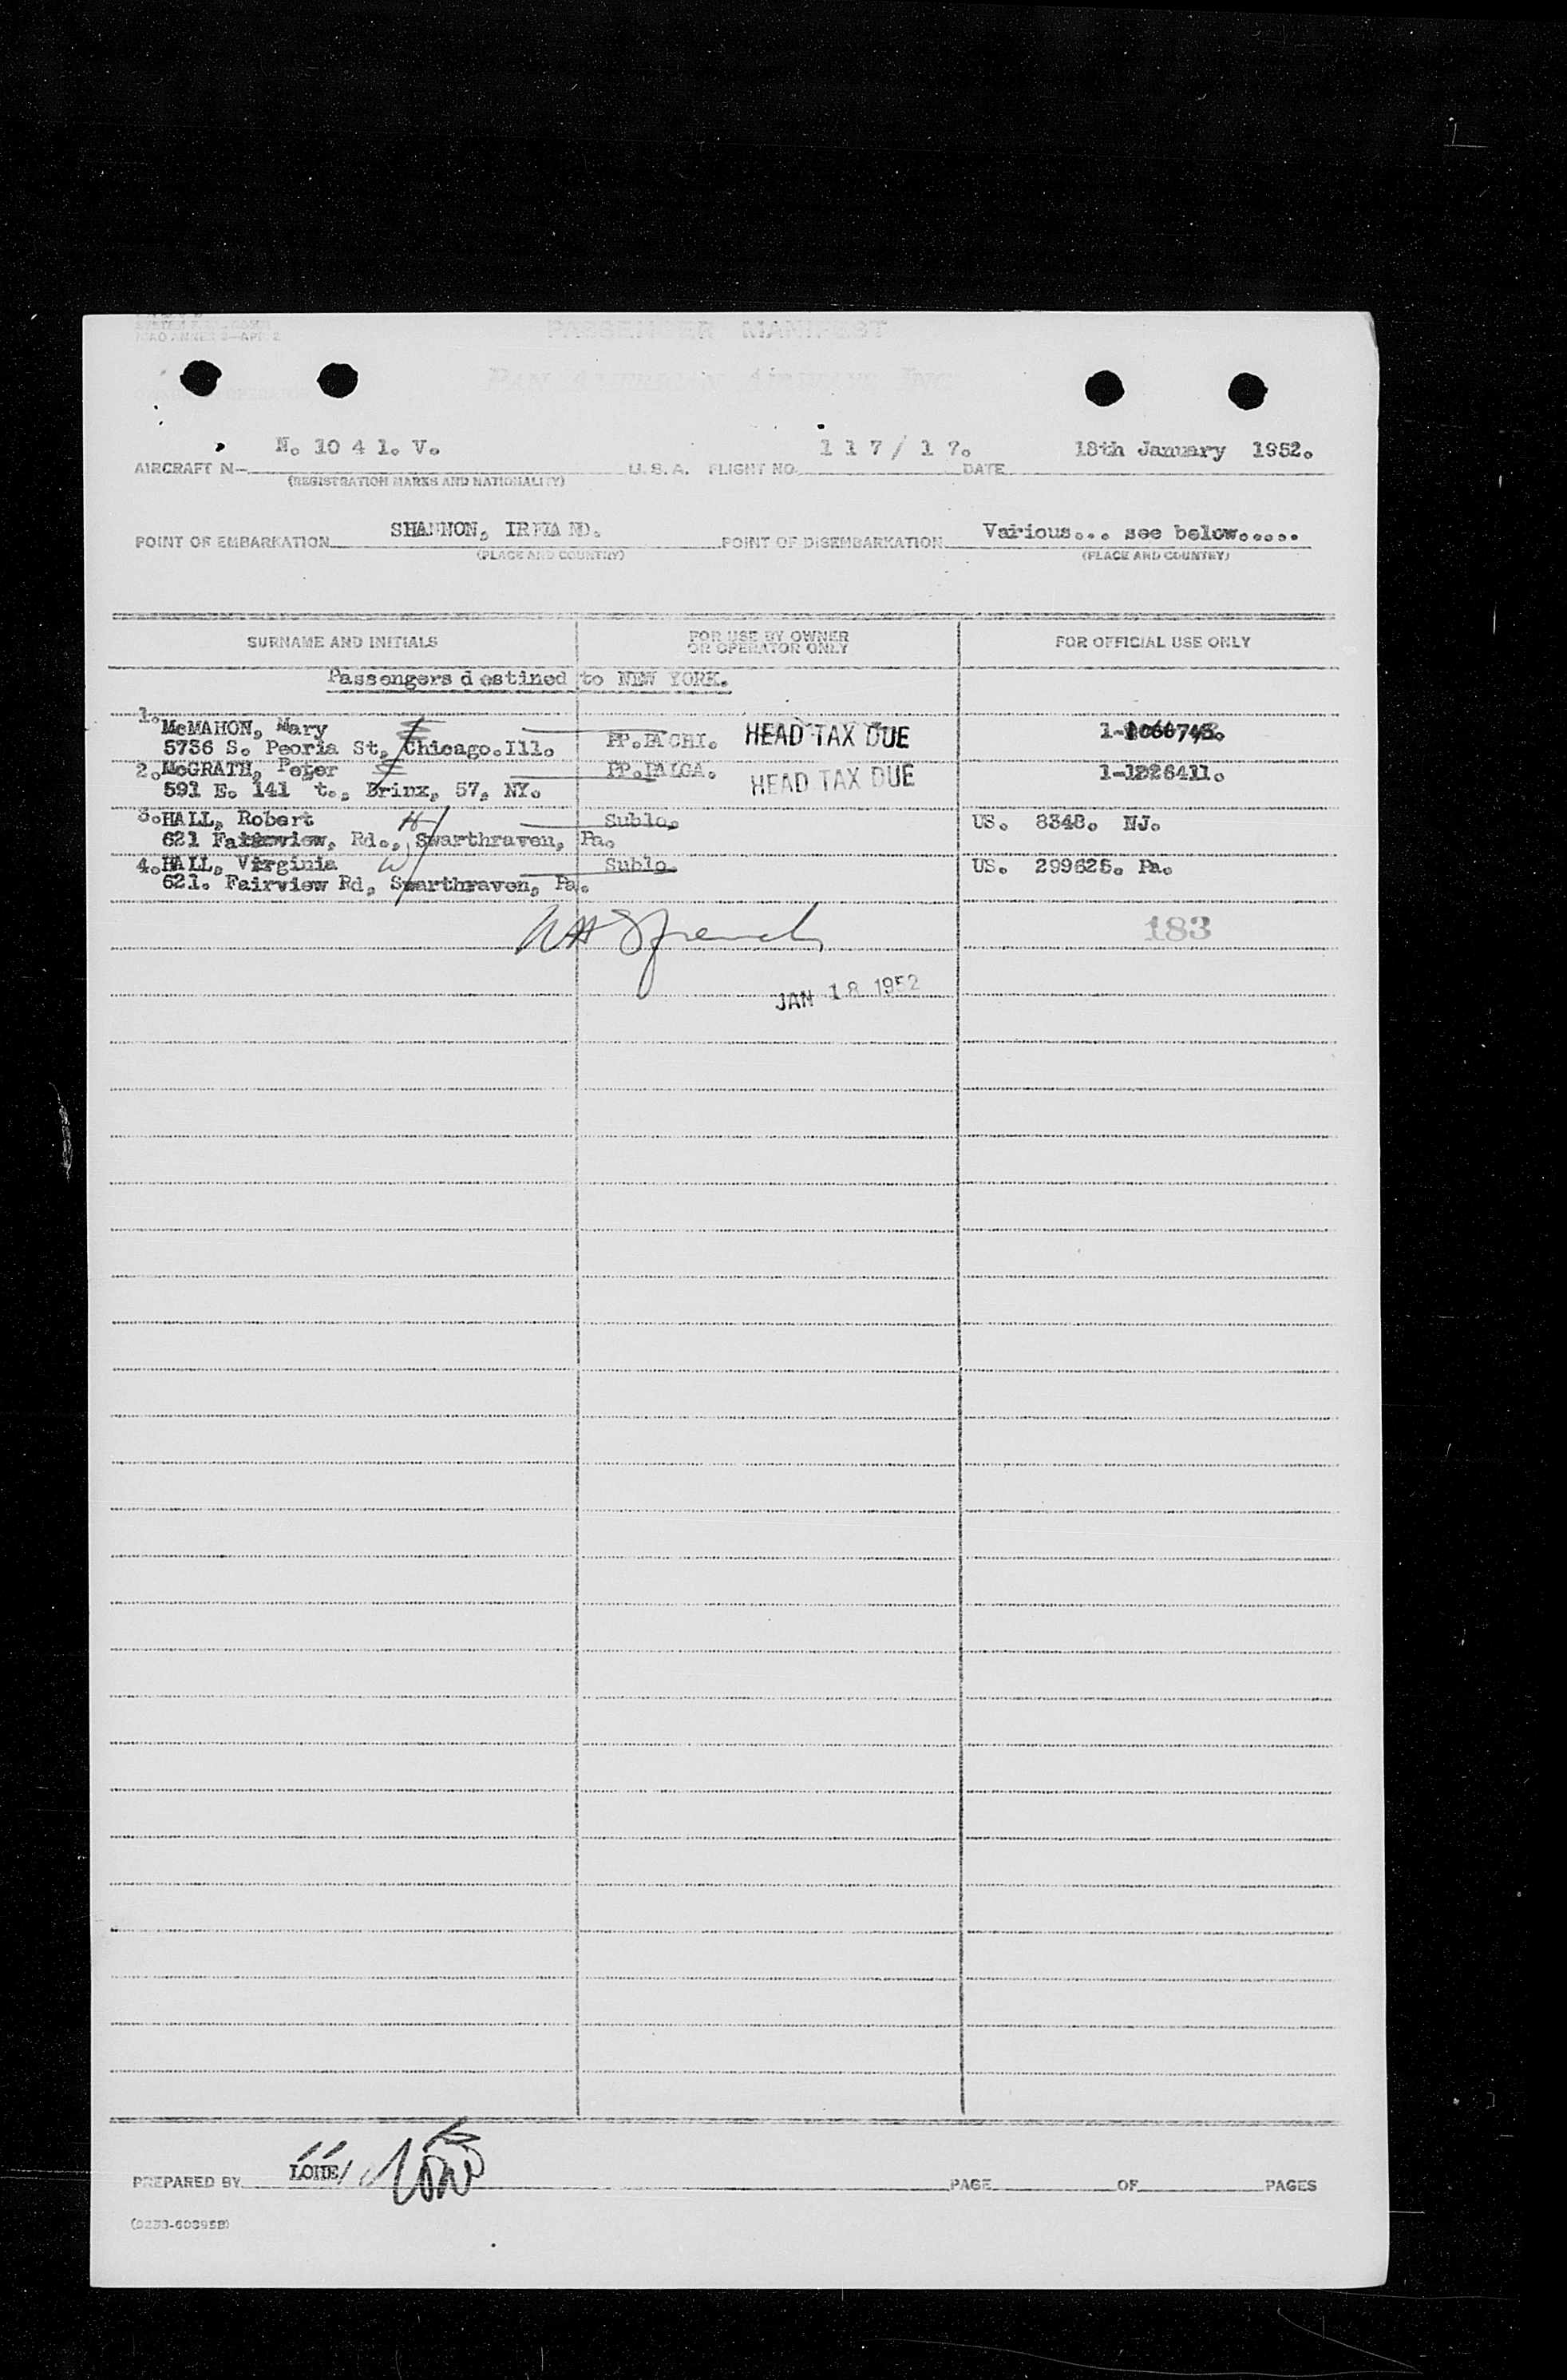 ICAO ANNEX 9—APP. 2
PASSENGER MANIFEST
PAN AMERICAN AIRWAYS INC
N. 10 4 1. V. 1 1 7 / 1 7. 18th January 1952.
AIRCRAFT N— U. S. A. FLIGHT NO. DATE
(REGISTRATION MARKS AND NATIONALITY)
SHANNON, IRELAND. Various... see below.....
POINT OF EMBARKATION POINT OF DISEMBARKATION
(PLACE AND COUNTRY) (PLACE AND COUNTRY)
SURNAME AND INITIALS FOR USE BY OWNER OR OPERATOR ONLY FOR OFFICIAL USE ONLY
Passengers destined to NEW YORK.
1. McMAHON, Mary
5736 S. Peoria St, Chicago.Ill. PP.PACHI. HEAD TAX DUE
2. McGRATH, Peter PP.PALGA. 1-1226411.
591 E. 141 t., Brinx, 57, NY. HEAD TAX DUE
3. HALL, Robert H Sublo. US. 8348. NJ.
621 Fairview, Rd., Swarthraven, Pa.
4. HALL, Virginia W Sublo. US. 299625. Pa.
621. Fairview Rd, Swarthraven, Pa.
183
JAN 18 1952
PREPARED BY PAGE OF PAGES